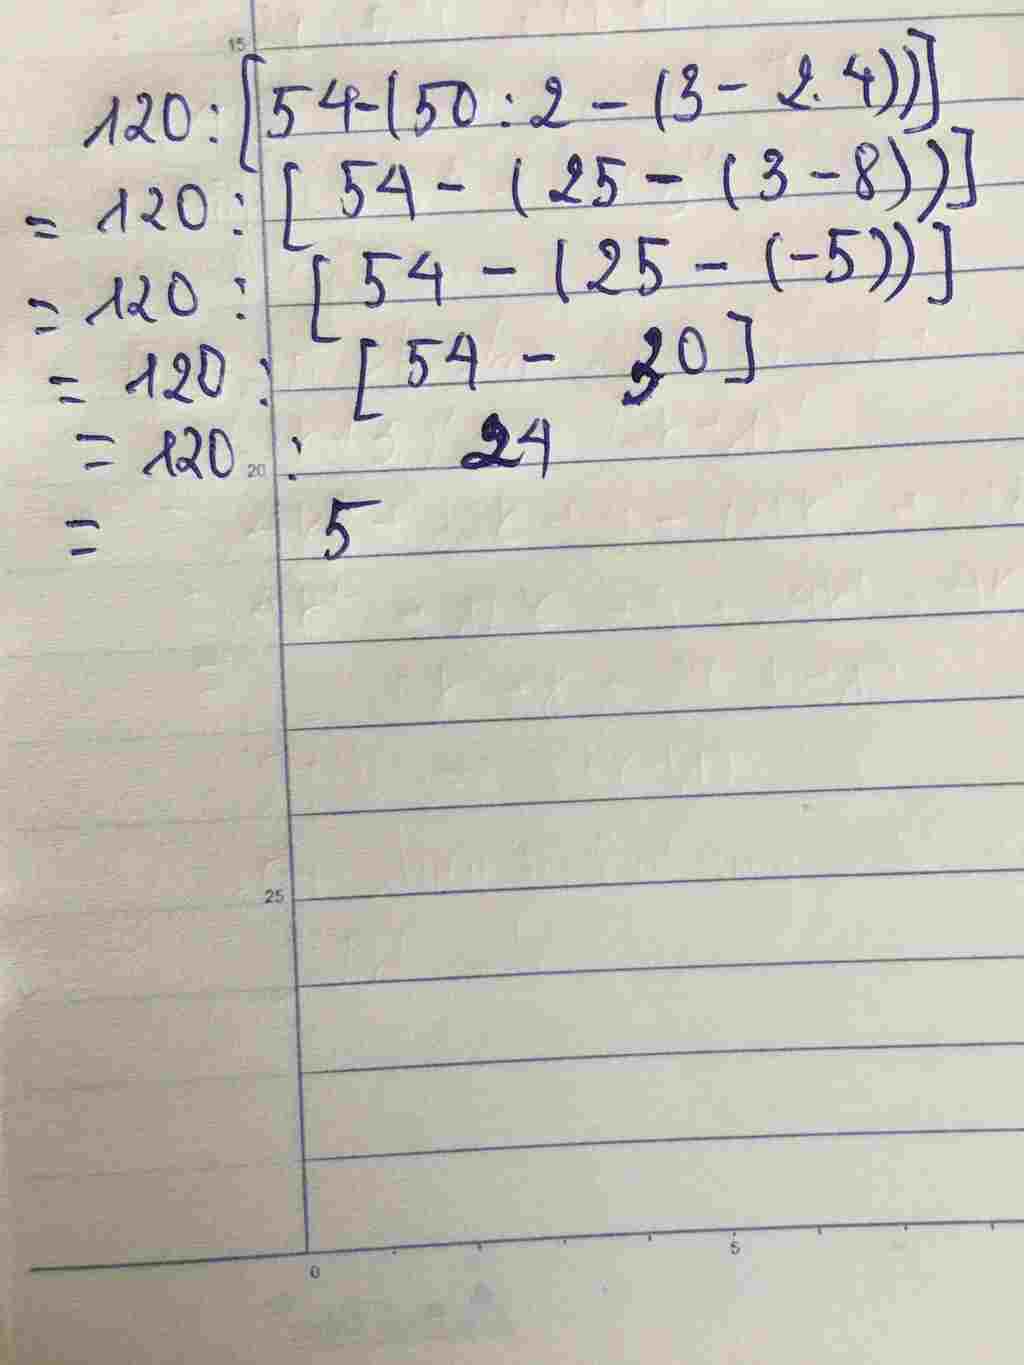 15
120:[54-(50:2-(3-2.4))]
= 120: [54 - (25 - (3-8))]
= 120: [54 - (25 - (-5))]
= 120: [54 - 30]
= 120: 24
20
= 5
25
0 5